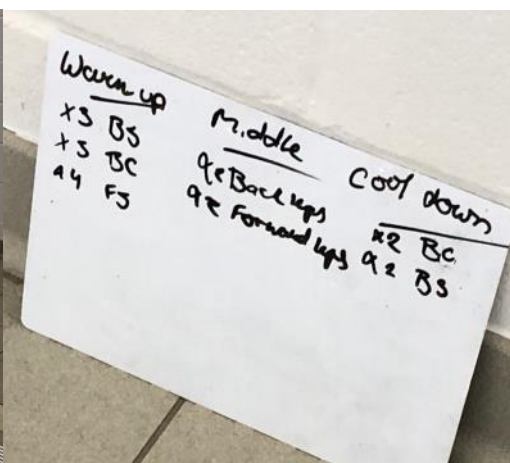 Warm up
x3 BS
x3 BC
x4 FS
Middle
x2 Back laps
x2 Forward laps
Cool down
x2 BC
x2 BS